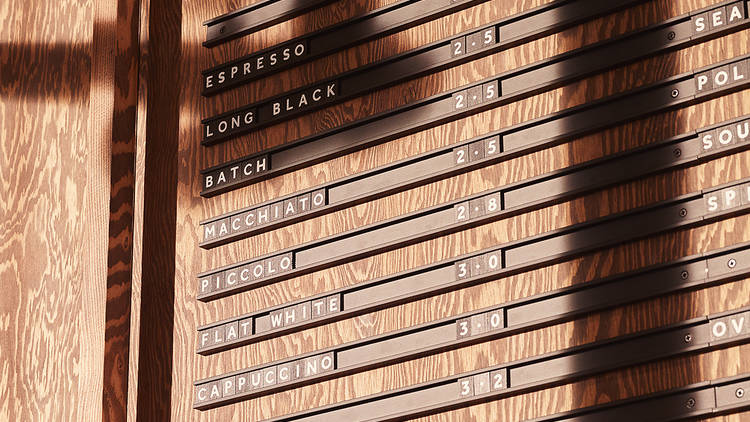 ESPRESSO
LONG BLACK 2.5
BATCH 2.5 SEA
MACCHIATO 2.5 POL
PICCOLO 2.8 SOU
FLAT WHITE 3.0 SPI
CAPPUCCINO 3.0
3.2 OV